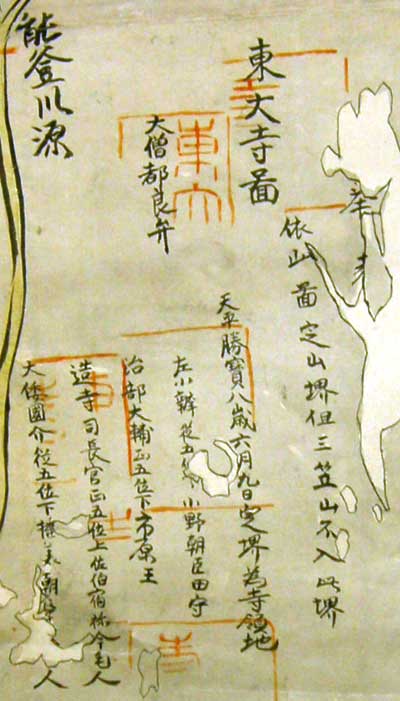 奉
依此啚定山堺但三笠山不入此堺
東大寺啚
天平勝寶八歳六月九日定堺為寺領地
大僧都良弁
左小辨從五位 小野朝臣田守
治部大輔正五位下市原王
造寺司長官正五位上佐伯宿祢今毛人
大倭國介從五位下 朝 人
能登川源